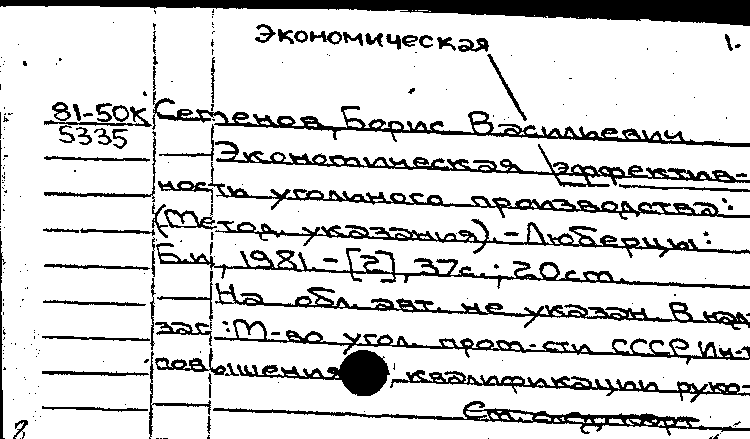 Экономическая
1.
81-50К Семенов, Борис Васильевич
5335
Экономическая эффектив-
ность угольного производства:
(Метод. указания). - Люберцы:
Б.и., 1981. - [2], 37с.; 20см.
На обл. авт. не указан. В над
заг.: М-во угол. пром-сти СССР, Ин-т
повышения квалификации руко-
См. след. карт.
8